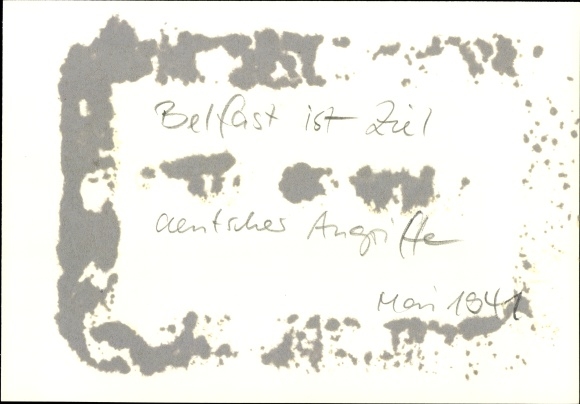 Belfast ist Ziel
deutscher Angriffe
Mai 1941